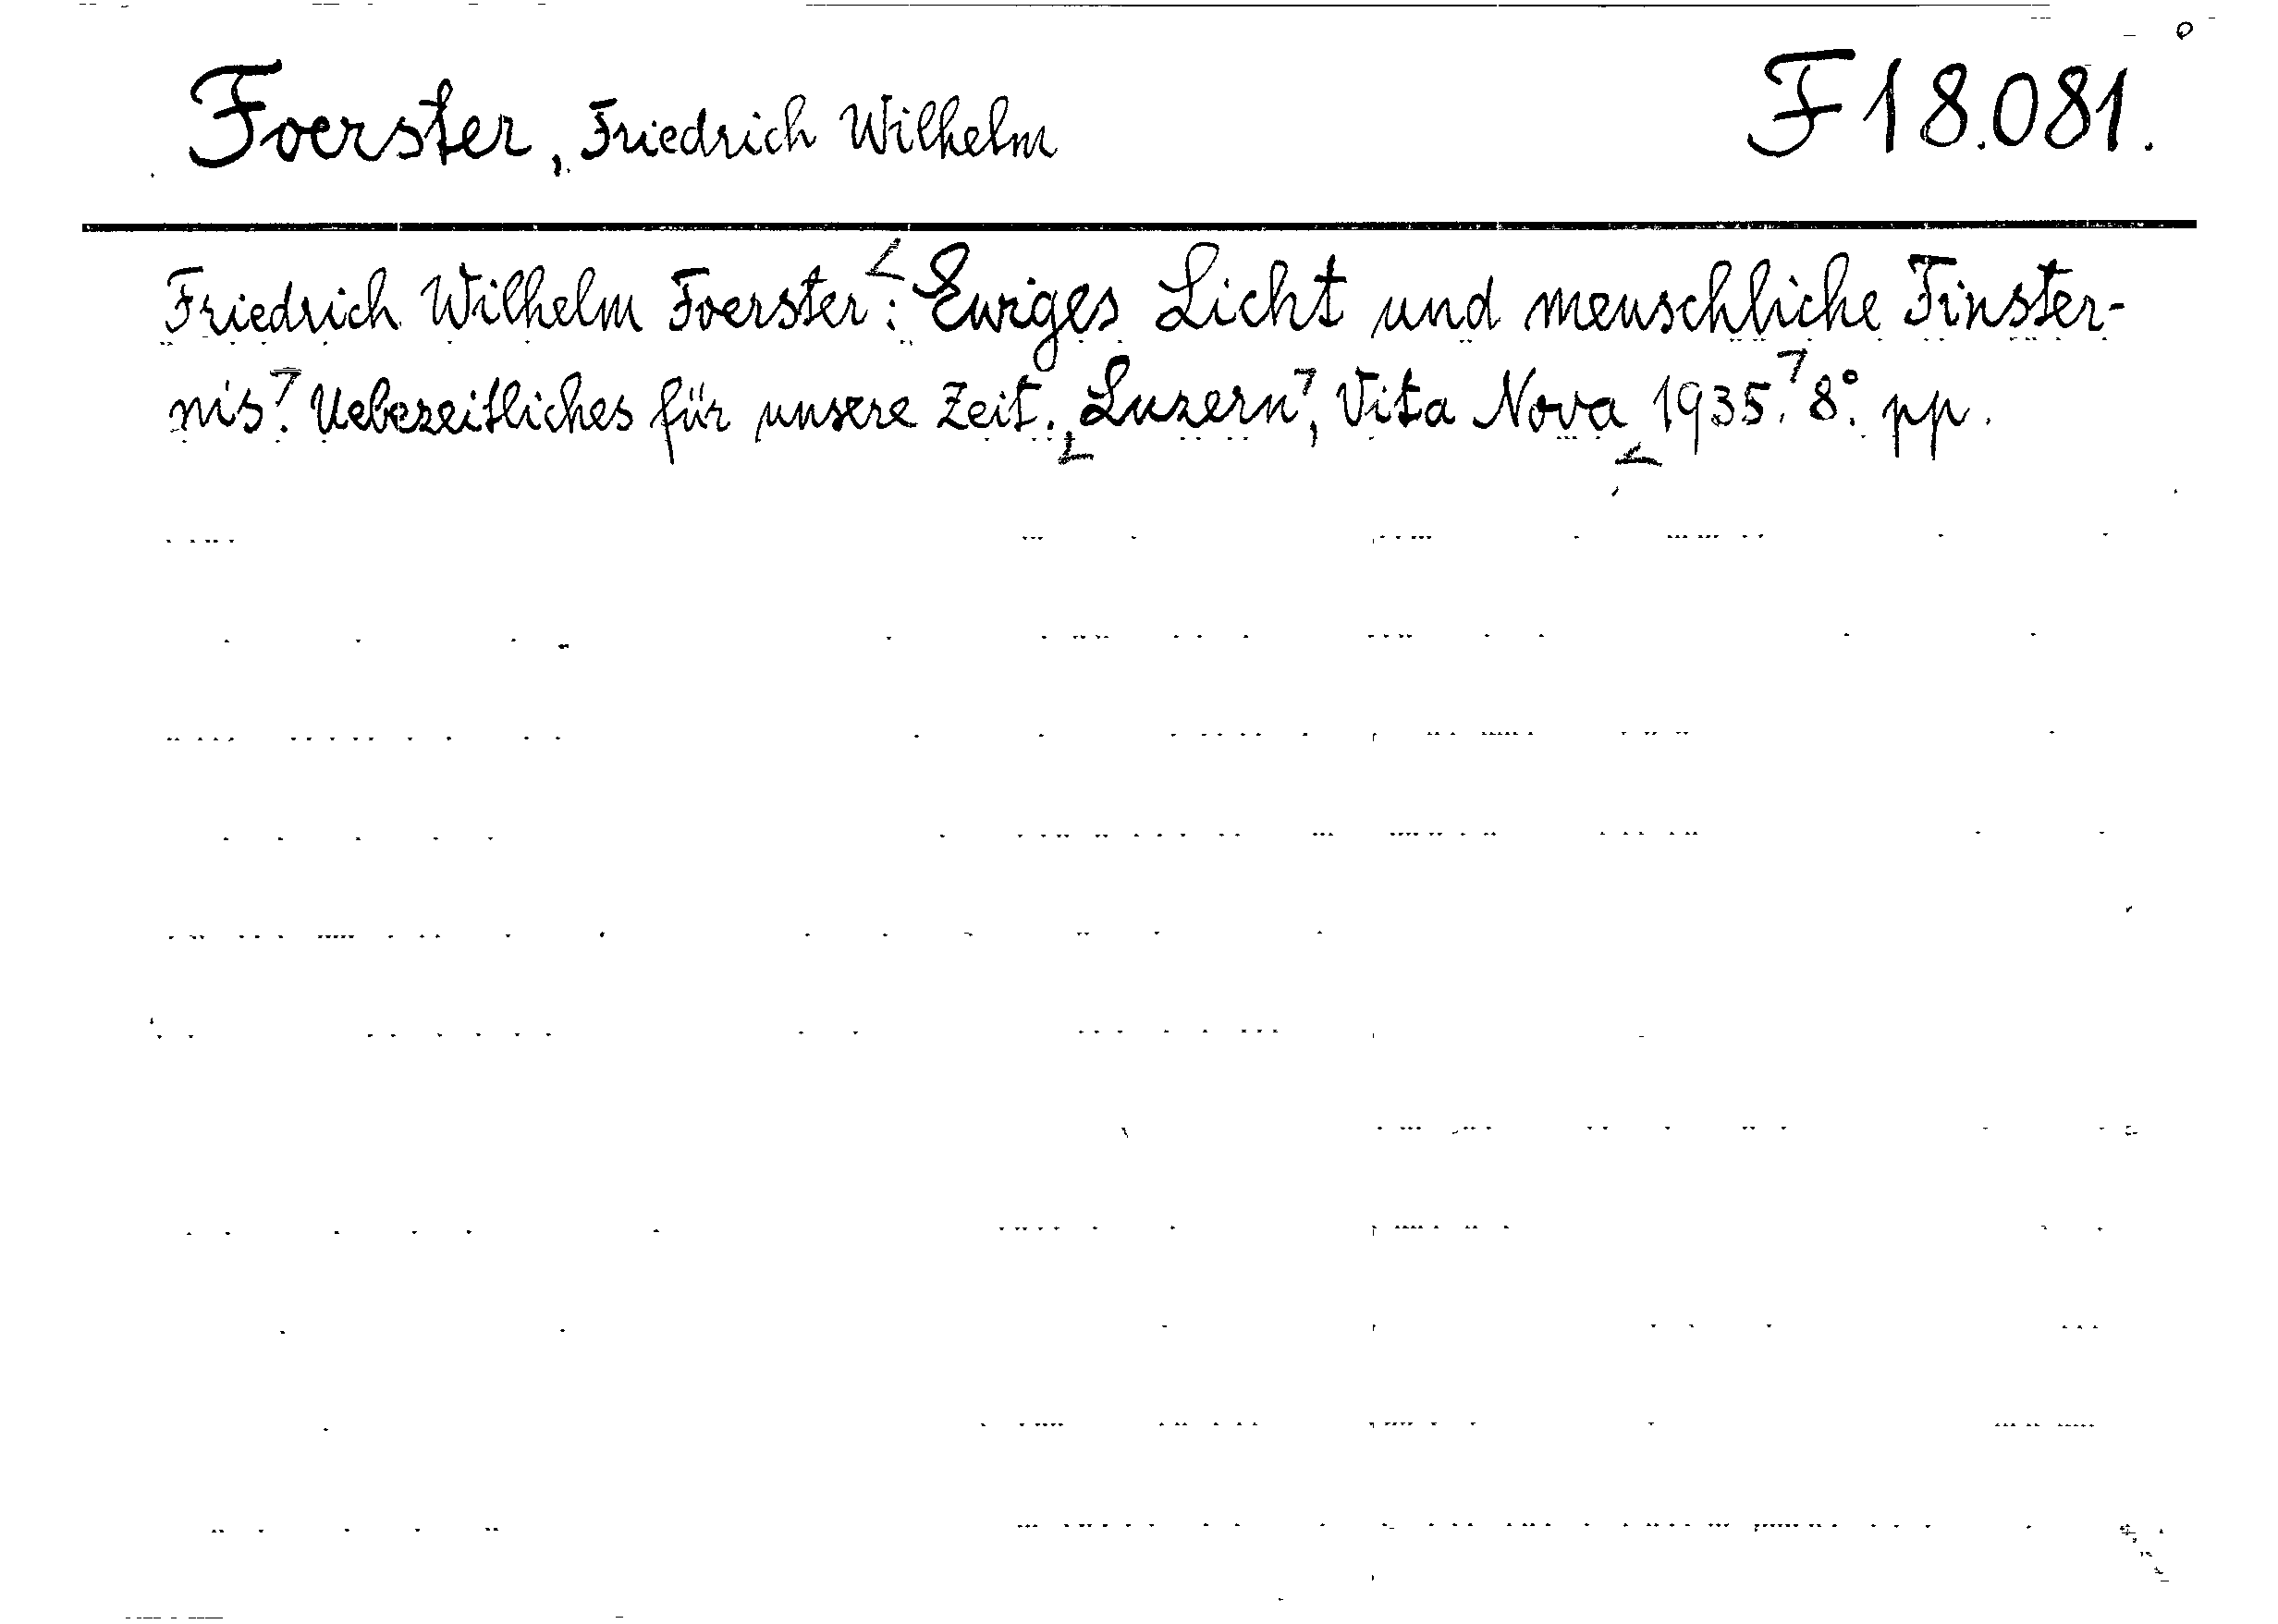 Foerster, Friedrich Wilhelm F 18.081.
Friedrich Wilhelm Foerster: Ewiges Licht und menschliche Finster-
nis. Uebezeitliches für unsere Zeit. Luzern, Vita Nova 1935. 8°. pp.